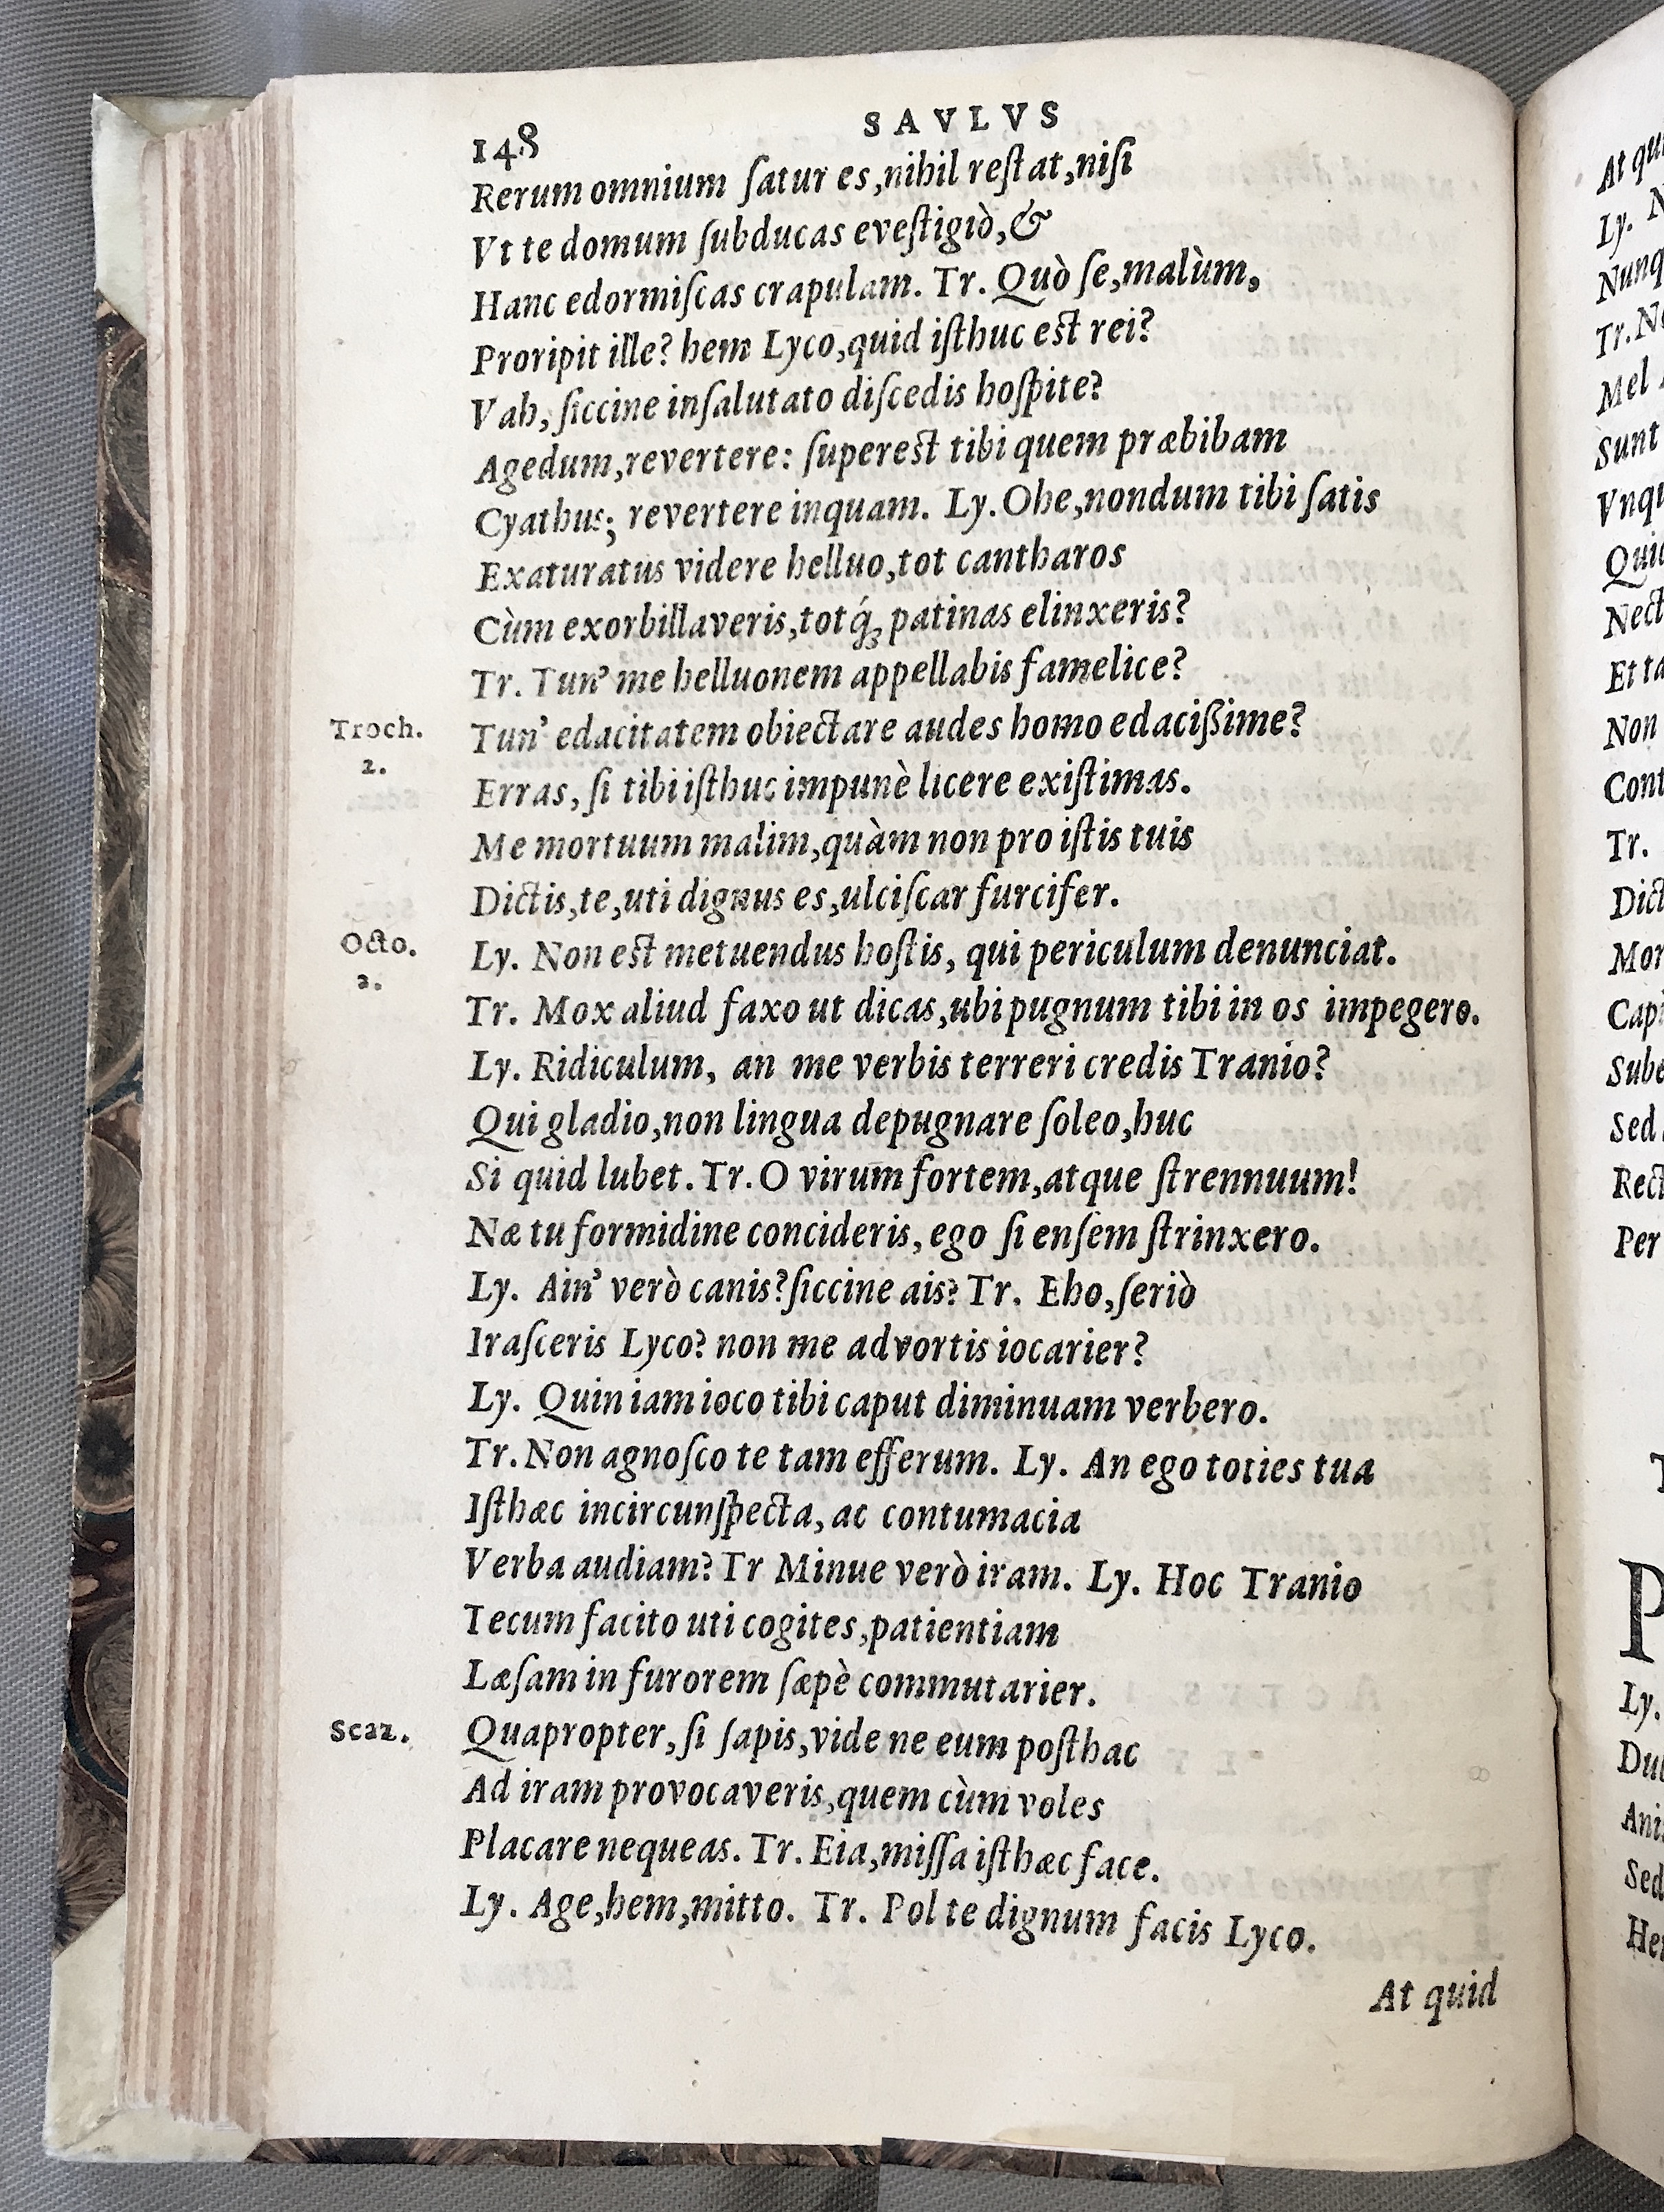 SAVLVS
148
Rerum omnium ſatur es,nihil reſtat,niſi
Vt te domum ſubducas eveſtigiò,&
Hanc edormiſcas crapulam. Tr. Quò ſe,malùm,
Proripit ille? hem Lyco,quid iſthuc est rei?
Vah, ſiccine inſalutato diſcedis hoſpite?
Agedum,revertere: ſuperest tibi quem præbibam
Cyathus; revertere inquam. Ly. Ohe,nondum tibi ſatis
Exaturatus videre helluo,tot cantharos
Cùm exorbillaveris,totq́; patinas elinxeris?
Tr. Tun' me helluonem appellabis famelice?
Troch. 2.
Tun' edacitatem obiectare audes homo edacißime?
Erras, ſi tibi iſthuc impunè licere exiſtimas.
Me mortuum malim,quàm non pro iſtis tuis
Dictis,te,uti dignus es,ulciſcar furcifer.
Octo. 2.
Ly. Non est metuendus hoſtis, qui periculum denunciat.
Tr. Mox aliud faxo ut dicas,ubi pugnum tibi in os impegero.
Ly. Ridiculum, an me verbis terreri credis Tranio?
Qui gladio,non lingua depugnare ſoleo,huc
Si quid lubet. Tr. O virum fortem,atque ſtrennuum!
Næ tu formidine concideris, ego ſi enſem ſtrinxero.
Ly. Ain' verò canis? ſiccine ais? Tr. Eho,ſeriò
Iraſceris Lyco? non me advortis iocarier?
Ly. Quin iam ioco tibi caput diminuam verbero.
Tr. Non agnoſco te tam efferum. Ly. An ego toties tua
Iſthæc incircunſpecta, ac contumacia
Verba audiam? Tr Minue verò iram. Ly. Hoc Tranio
Tecum facito uti cogites,patientiam
Læſam in furorem ſæpè commutarier.
Scaz.
Quapropter, ſi ſapis,vide ne eum poſthac
Ad iram provocaveris,quem cùm voles
Placare nequeas. Tr. Eia,miſſa iſthæc face.
Ly. Age,hem,mitto. Tr. Pol te dignum facis Lyco.
At quid
At qui
Ly. N
Nunq
Tr. No
Mel
Sunt
Vnqu
Quid
Nect
Et ta
Non
Cont
Tr.
Dict
Mor
Capi
Sube
Sed
Rect
Per
P
Ly.
Dul
Ani
Sed
Her